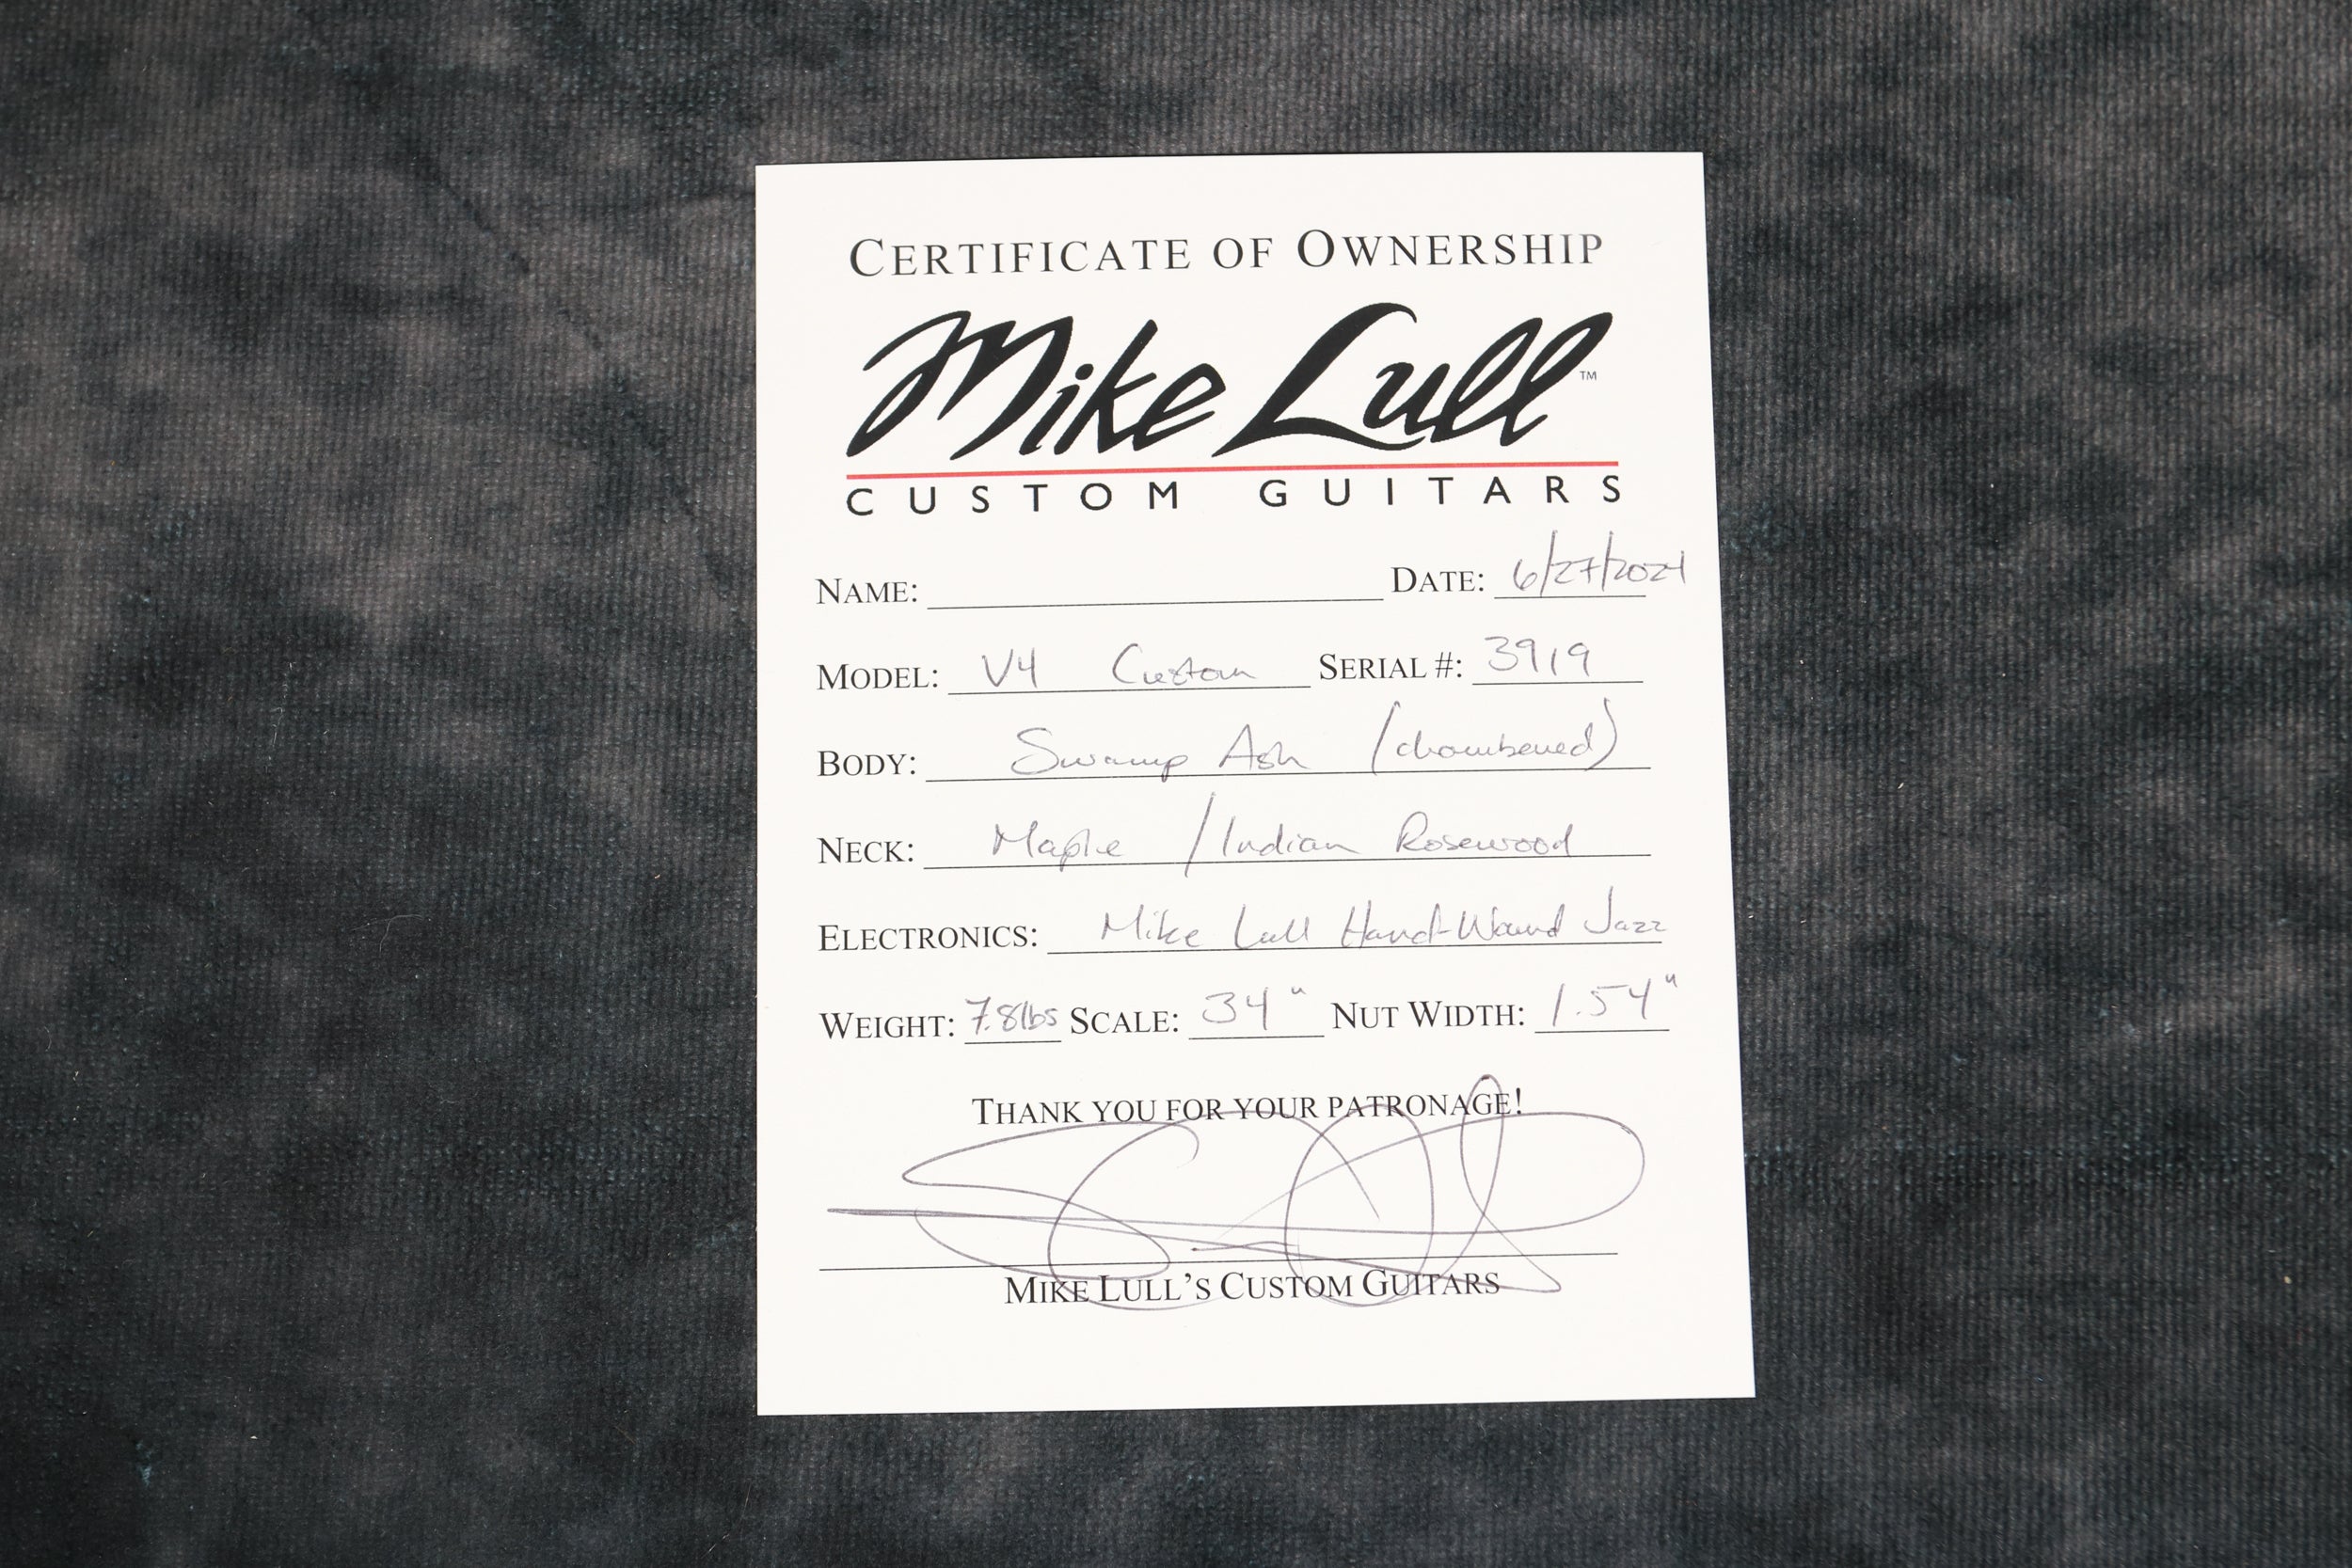 CERTIFICATE OF OWNERSHIP
Mike Lull™
CUSTOM GUITARS
NAME: DATE: 6/27/2021
MODEL: V4 Custom SERIAL #: 3919
BODY: Swamp Ash (chambered)
NECK: Maple / Indian Rosewood
ELECTRONICS: Mike Lull Hand-Wound Jazz
WEIGHT: 7.8lbs SCALE: 34" NUT WIDTH: 1.54"
THANK YOU FOR YOUR PATRONAGE!
MIKE LULL'S CUSTOM GUITARS